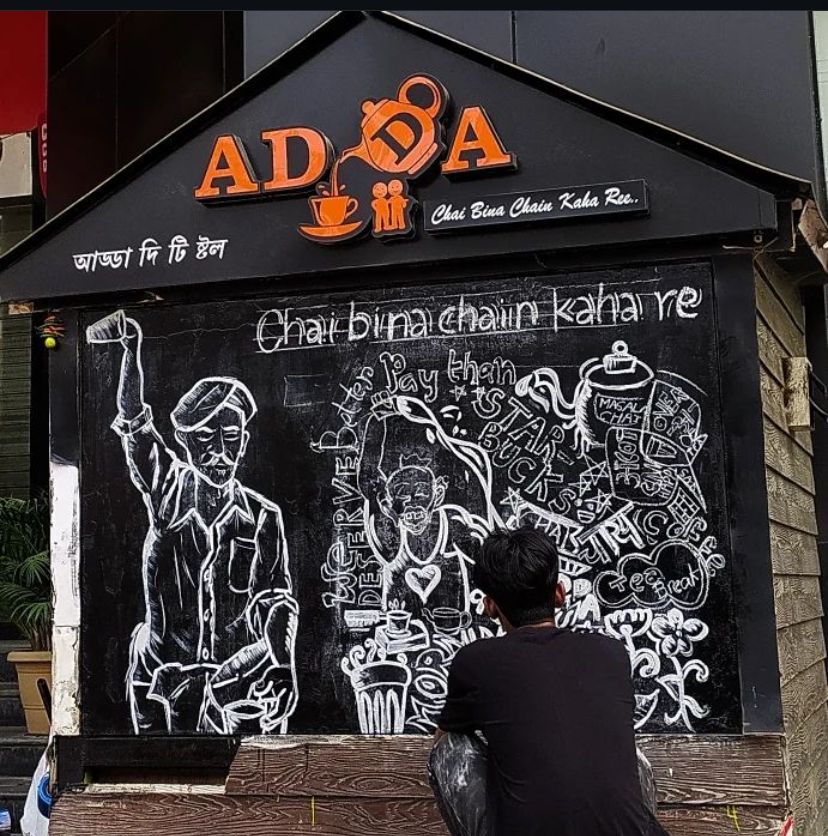 ADDA
Chai Bina Chain Kaha Ree..
আড্ডা দি টি ষ্টল
Chai bina chain kaha re
WE DESERVE Better Pay than
STAR-
BUCKS
MASALA
CHAI
LOVE
चाय
COFFEE
Tea Break